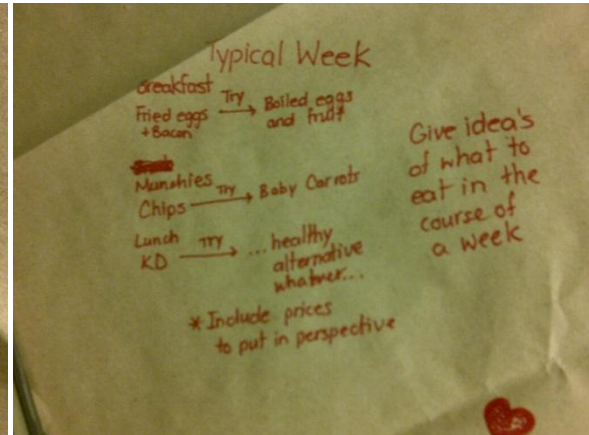 Typical Week
Breakfast
Fried eggs + Bacon Try Boiled eggs and fruit
Munchies
Chips Try Baby Carrots
Lunch
KD Try ...healthy alternative whatever...
*Include prices
to put in perspective
Give idea's
of what to
eat in the
course of
a week